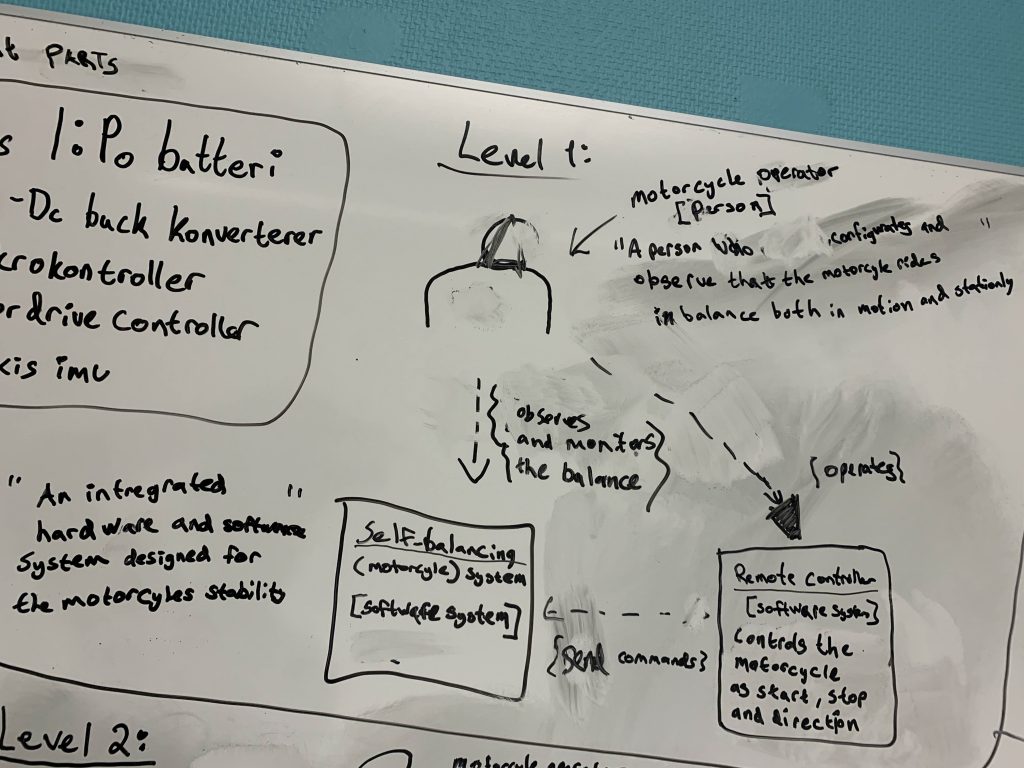 PARTS
liPo batteri
-Dc buck Konverterer
rokontroller
drive Controller
imu
Level 1:
motorcycle operator
[Person]
"A person who , configurates and "
observe that the motorcycle rides
in balance both in motion and stationly
observes
and monitors
the balance
{operates}
" An intregrated "
hardware and software
System designed for
the motorcycles stability
Self-balancing
(motorcycle) system
[software system]
{Send commands}
Remote Controller
[software system]
Controls the
motorcycle
as start, stop
and direction
Level 2: